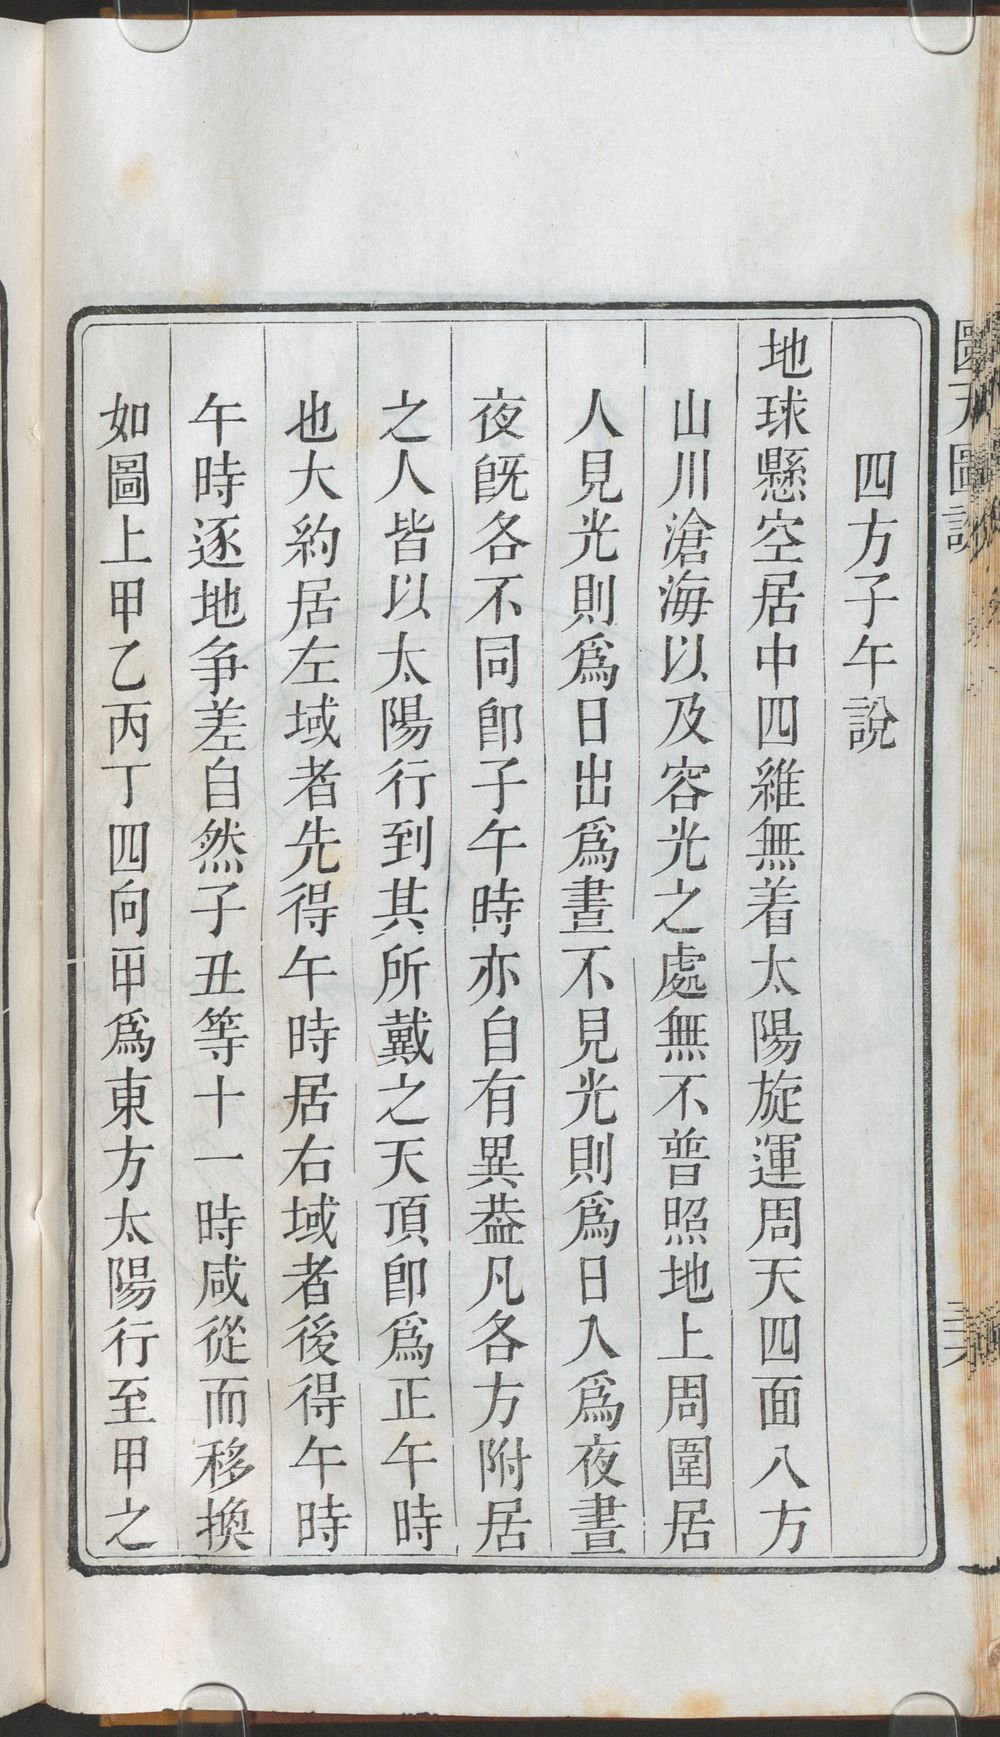 四方子午說
地球懸空居中四維無着太陽旋運周天四面八方
山川滄海以及容光之處無不普照地上周圍居
人見光則爲日出爲晝不見光則爲日入爲夜晝
夜旣各不同卽子午時亦自有異葢凡各方附居
之人皆以太陽行到其所戴之天頂卽爲正午時
也大約居左域者先得午時居右域者後得午時
午時逐地争差自然子丑等十一時咸從而移換
如圖上甲乙丙丁四向甲爲東方太陽行至甲之